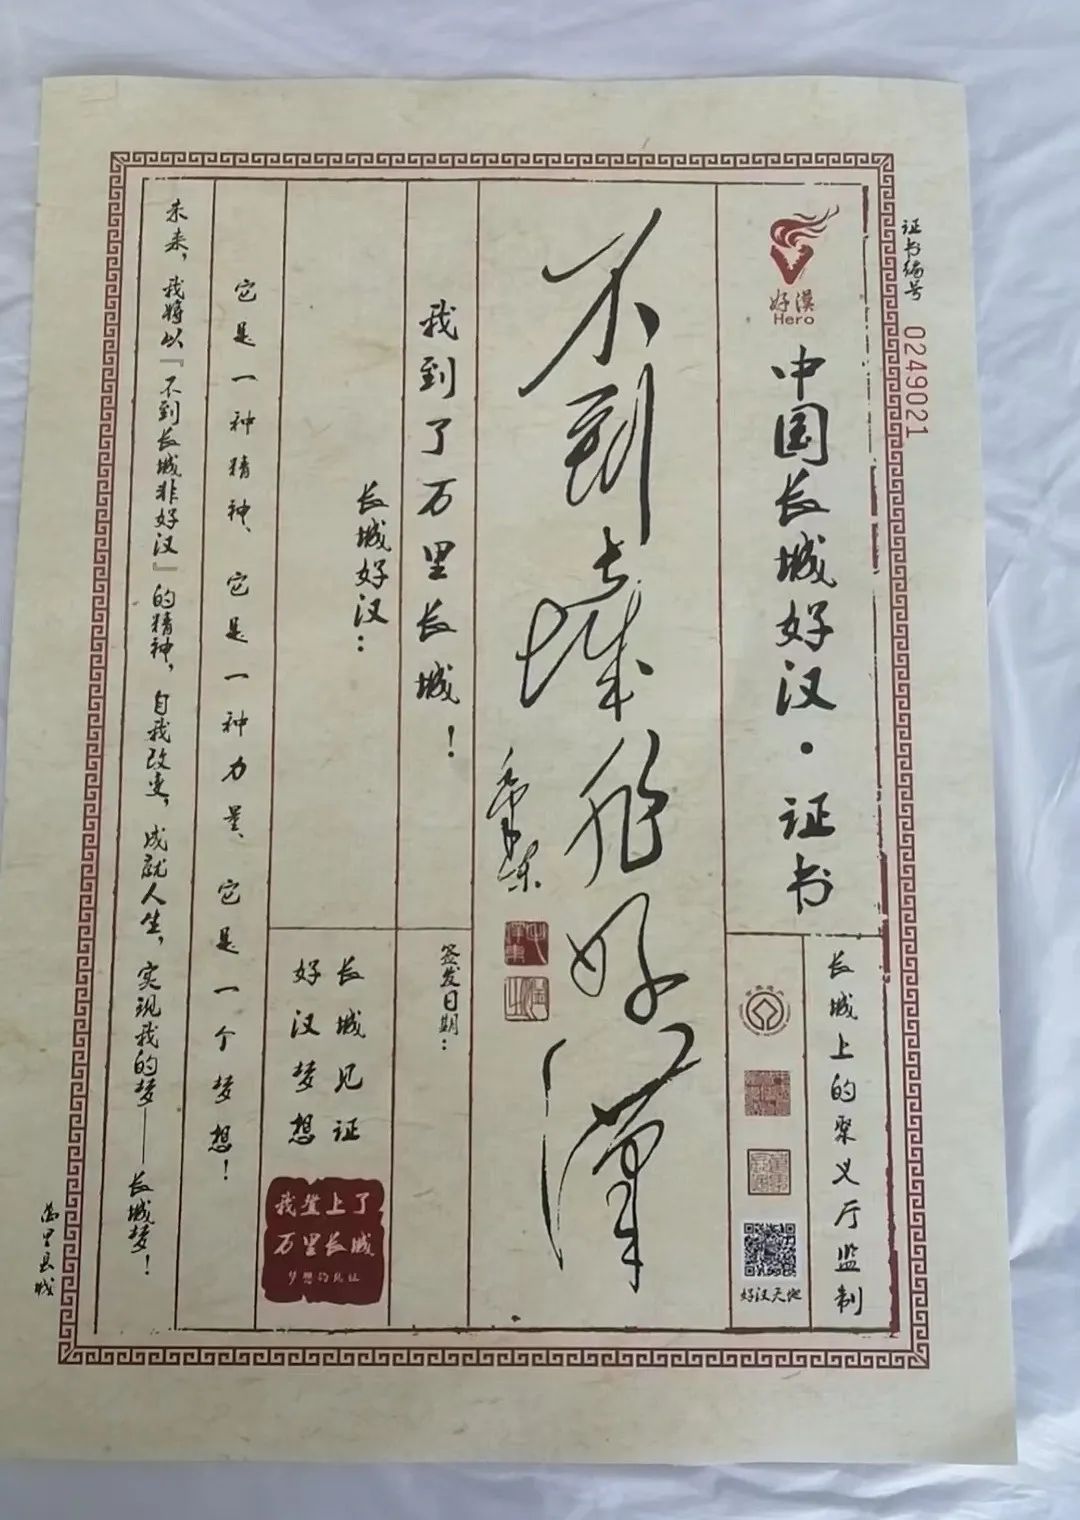 证书编号 0249021
好漠
Hero
中国长城好汉·证书
长城上的聚义厅监制
好汉天地
不到长城非好汉
毛泽东
我到了万里长城！
签发日期：
长城好汉：
长城见证
好汉梦想
我登上了
万里长城
梦想的见证
它是一种精神、它是一种力量、它是一个梦想！
未来，我将以『不到长城非好汉』的精神，自我改变，成就人生，实现我的梦——长城梦！